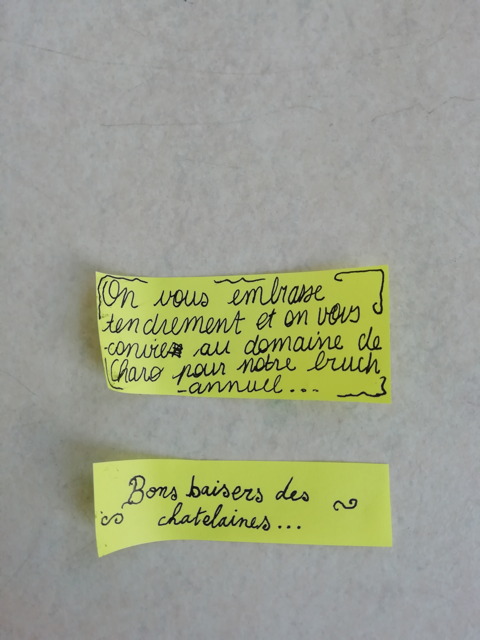 On vous embrasse
tendrement et on vous
convie au domaine de
Charo pour notre bruch
annuel...
Bons baisers des
chatelaines...